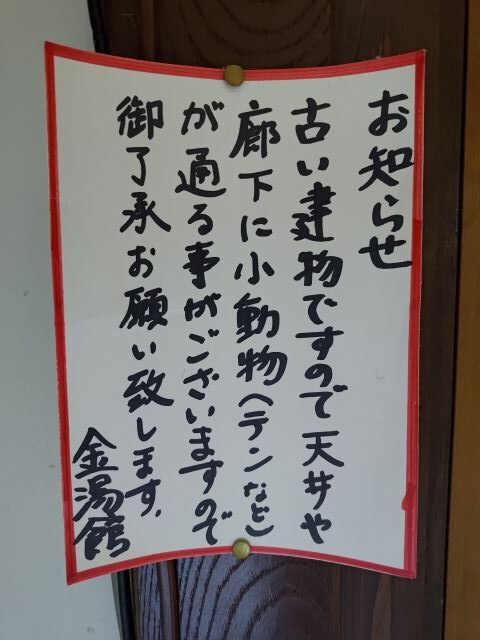 お知らせ
古い建物ですので天井や
廊下に小動物(テンなど)
が通る事がございますので
御了承お願い致します.
金湯館